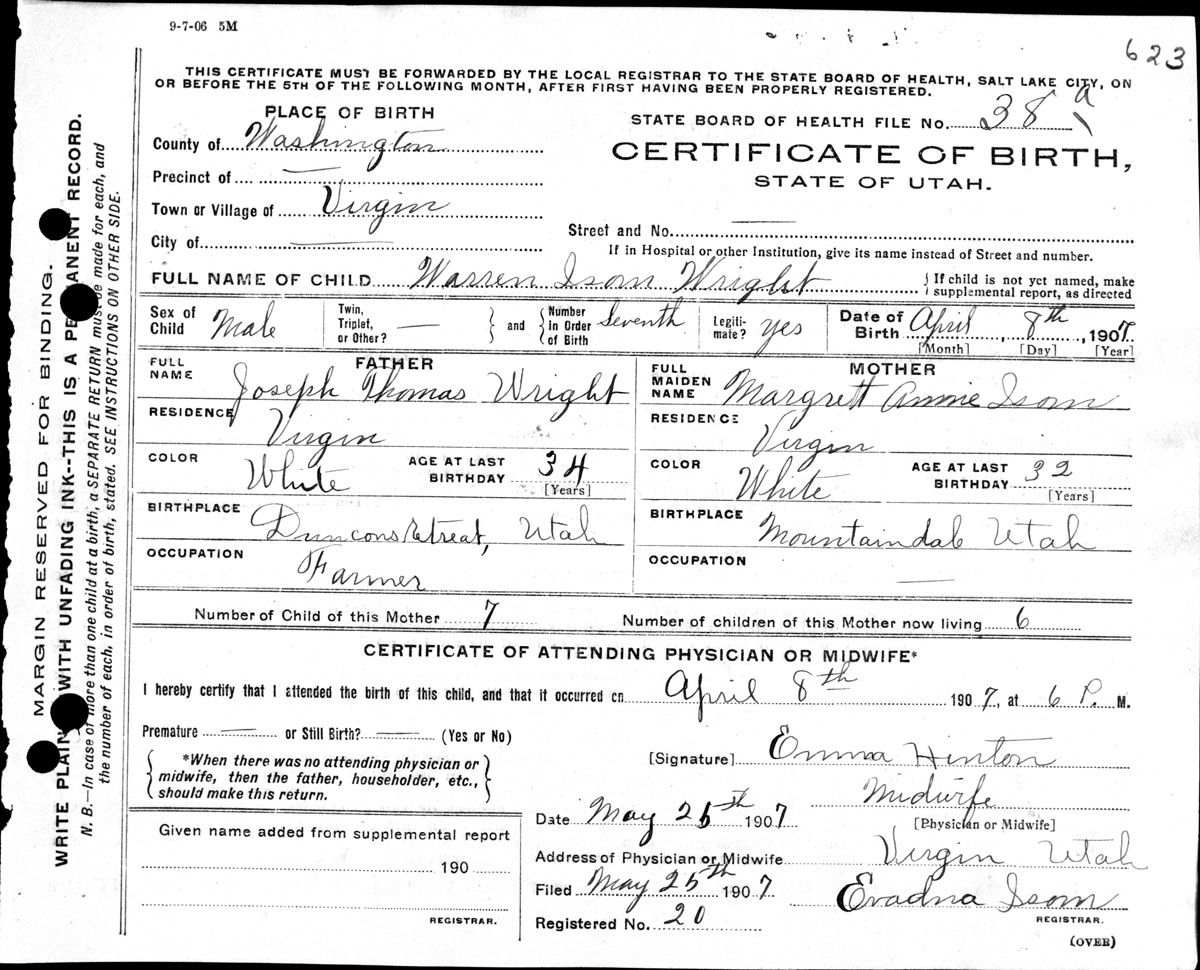 9-7-06 5M
623
THIS CERTIFICATE MUST BE FORWARDED BY THE LOCAL REGISTRAR TO THE STATE BOARD OF HEALTH, SALT LAKE CITY, ON
OR BEFORE THE 5TH OF THE FOLLOWING MONTH, AFTER FIRST HAVING BEEN PROPERLY REGISTERED.
PLACE OF BIRTH
STATE BOARD OF HEALTH FILE No. 38 a
County of Washington
CERTIFICATE OF BIRTH,
STATE OF UTAH.
Precinct of
Town or Village of Virgin
Street and No.
City of
If in Hospital or other Institution, give its name instead of Street and number.
FULL NAME OF CHILD Warren Isom Wright
{ If child is not yet named, make
supplemental report, as directed
Sex of Child Male
Twin, Triplet, or Other? — } and { Number in Order of Birth Seventh
Legiti-mate? yes
Date of Birth April 8th, 1907
[Month] [Day] [Year]
FATHER
FULL NAME Joseph Thomas Wright
RESIDENCE Virgin
COLOR White
AGE AT LAST BIRTHDAY 34
[Years]
BIRTHPLACE Duncons Retreat, Utah
OCCUPATION Farmer
MOTHER
FULL MAIDEN NAME Margrett Annie Isom
RESIDENCE Virgin
COLOR White
AGE AT LAST BIRTHDAY 32
[Years]
BIRTHPLACE Mountaindal Utah
OCCUPATION —
Number of Child of this Mother 7
Number of children of this Mother now living 6
CERTIFICATE OF ATTENDING PHYSICIAN OR MIDWIFE*
I hereby certify that I attended the birth of this child, and that it occurred on April 8th 1907, at 6 P. M.
Premature — or Still Birth? — (Yes or No)
{ *When there was no attending physician or
midwife, then the father, householder, etc.,
should make this return. }
[Signature] Emma Hinton
Midwife
[Physician or Midwife]
Date May 25th 1907
Address of Physician or Midwife Virgin Utah
Filed May 25th 1907
Evadna Isom
REGISTRAR.
Registered No. 20
(OVER)
Given name added from supplemental report
190
REGISTRAR.
MARGIN RESERVED FOR BINDING.
WRITE PLAIN WITH UNFADING INK--THIS IS A PE MANENT RECORD.
N. B.—In case of more than one child at a birth, a SEPARATE RETURN must be made for each, and
the number of each, in order of birth, stated. SEE INSTRUCTIONS ON OTHER SIDE.